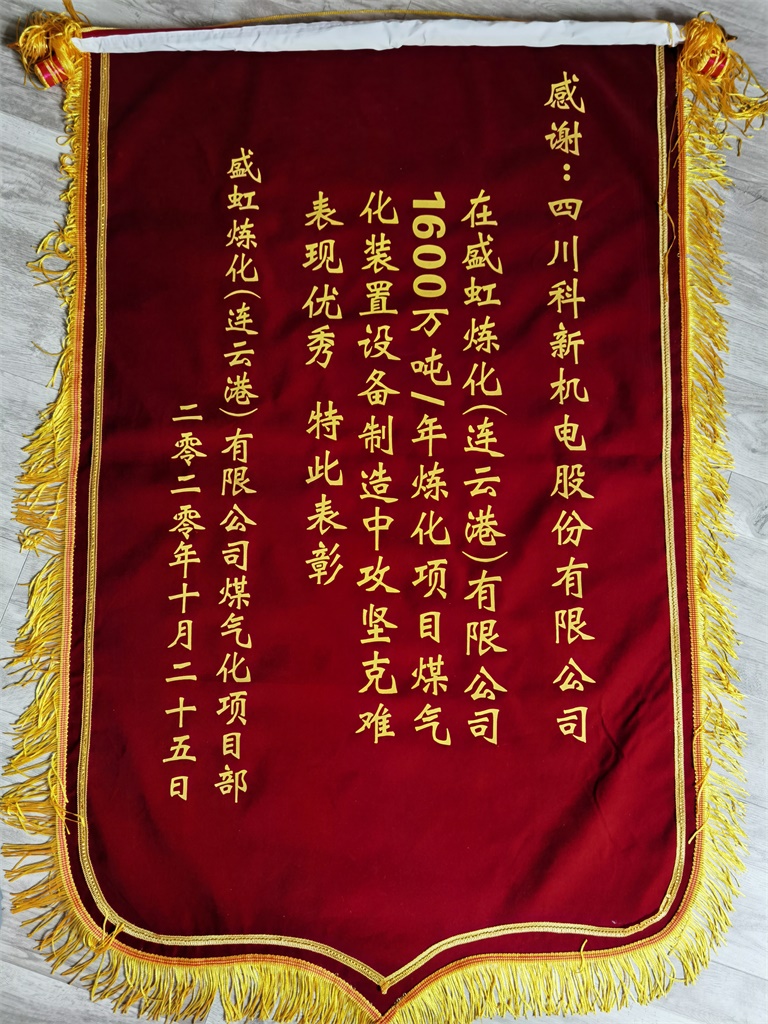 感谢：四川科新机电股份有限公司
在盛虹炼化(连云港)有限公司
1600万吨/年炼化项目煤气
化装置设备制造中攻坚克难
表现优秀 特此表彰
盛虹炼化(连云港)有限公司煤气化项目部
二零二零年十月二十五日